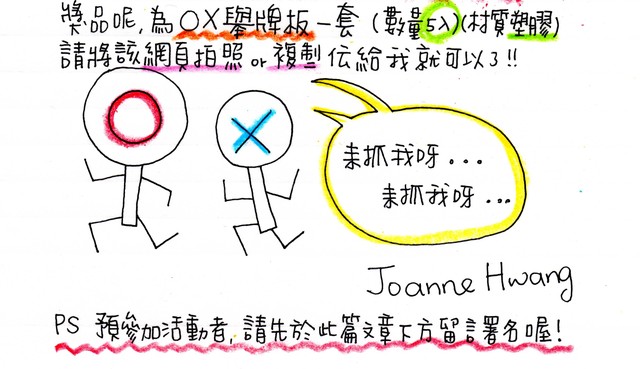 獎品呢,為OX舉牌板一套(數量5入)(材質塑膠)
請將該網頁拍照or複製伝給我就可以了!!
来抓我呀...
来抓我呀...
Joanne Hwang
PS 預參加活動者,請先於此篇文章下方留言署名喔!